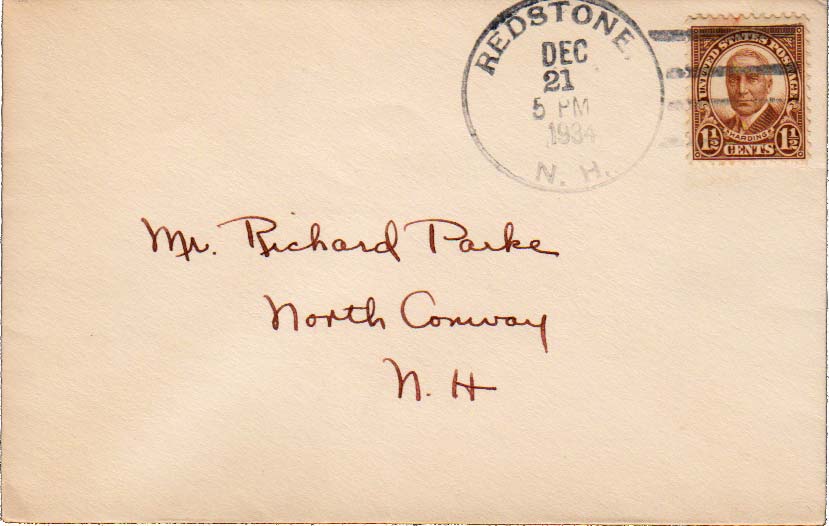 REDSTONE,
DEC
21
5 PM
1934
N. H.
UNITED STATES POSTAGE
HARDING
1½ 1½
CENTS
Mr. Richard Parke
North Conway
N. H